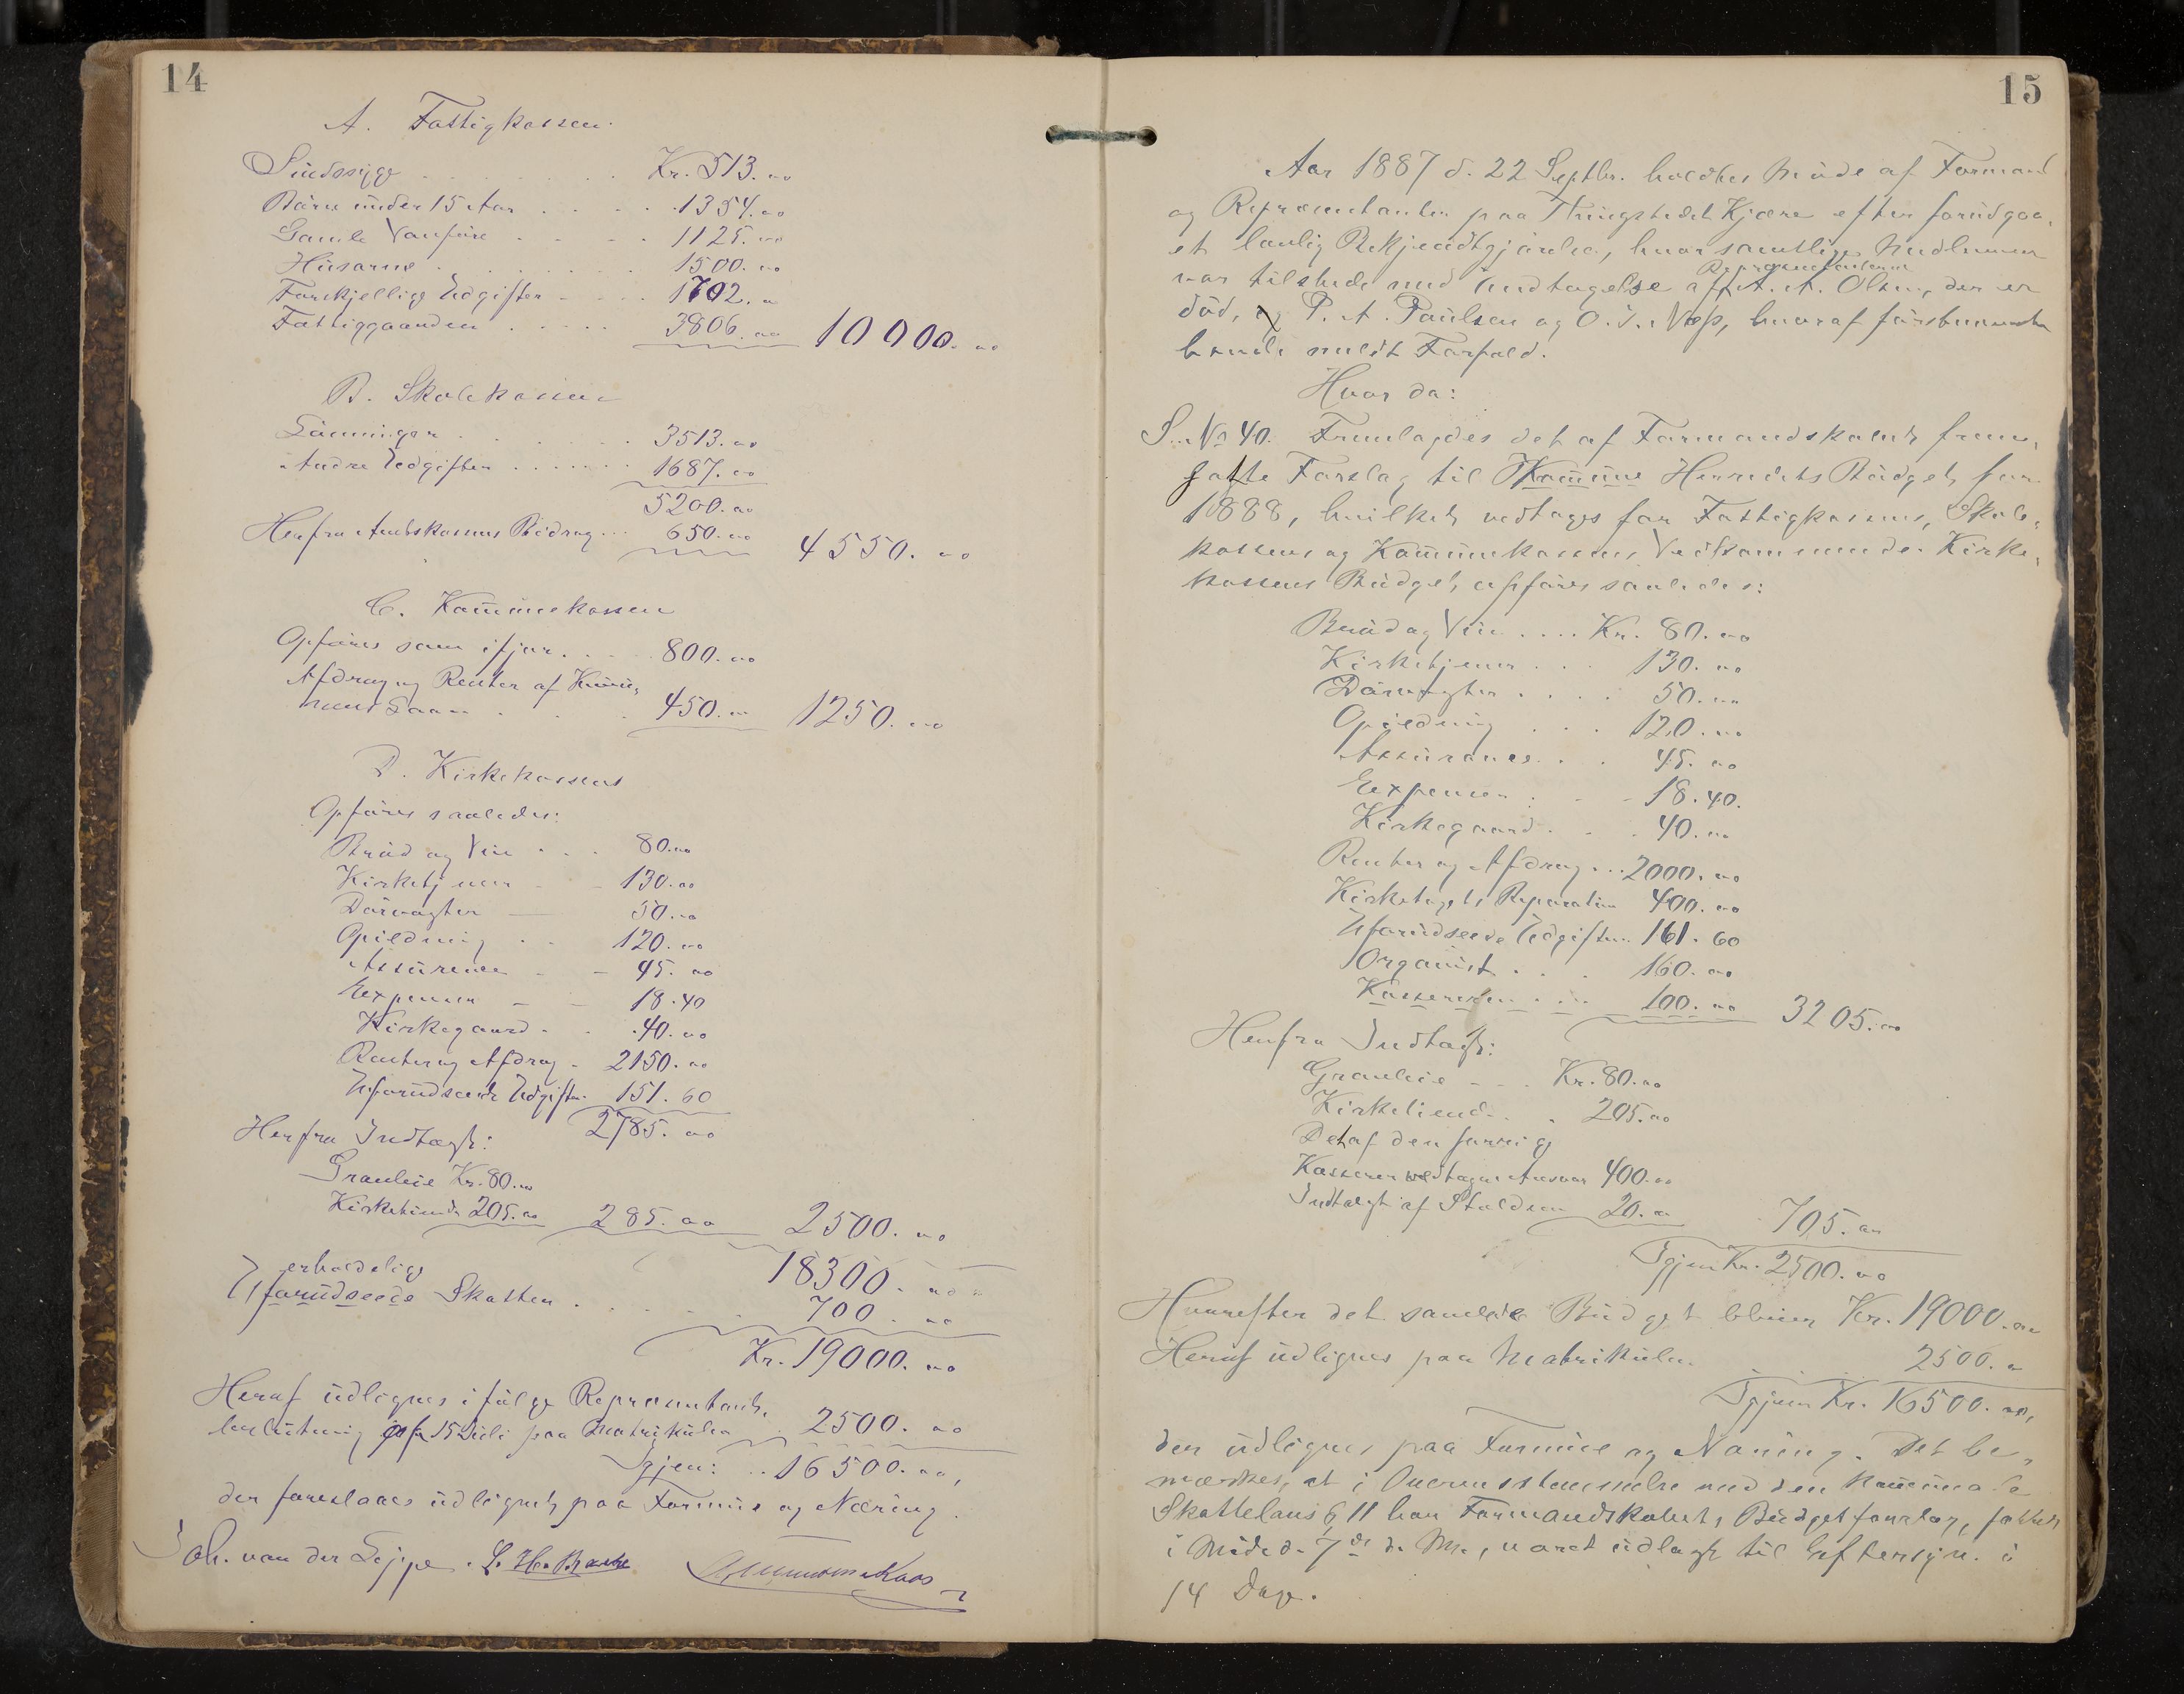 14
A. Fattigkassen.
Sindssyge . . . . . . . Kr. 513. 00
Børn under 15 Aar . . . . 1354. 00
Gamle Vanføre . . . . 1125. 00
Husarme . . . . . . . 1500. 00
Forskjellige Udgifter . . . . 1702. 00
Fattiggaarden . . . . . 3806. 00 10000. 00
B. Skolekassen
Lønninger . . . . . . 3513. 00
Andre Udgifter . . . . . . . 1687. 00
5200. 00
Herfra Amtskassens Bidrag . . . 650. 00 4550. 00
C. Kommunekassen
Opføres som ifjor. . . . 800. 00
Afdrag og Renter af Kommu,
nens Laan . . . 450. 00 1250. 00
D. Kirkekassens
Opføres saaledes:
Brød og Vin . . . 80. 00
Kirketjener - - 130. 00
Dørvogter — 50. 00
Opildning . . 120. 00
Assurance - - 45. 00
Expenser - - 18. 40
Kirkegaard - . 40. 00
Renter og Afdrag - 2150. 00
Uforudseede Udgifter. 151. 60
2785. 00
Herfra Indtægt:
Gravleie Kr. 80. 00
Kirketiende 205. 00 285. 00 2500. 00
18300. 00
erholdelige
Uforudseede Skatter . . . . . . 700. 00
Kr. 19000. 00
Heraf udlignes i følge Repræsentants,
beslutning af 15 Juli paa Matrikulen 2500. 00
Igjen: . . 16500. 00,
der foreslaaes udlignet paa Formue og Næring.
Joh. van der Lippe. L. H. Braathe
15
Aar 1887 d. 22 Septbr. holdtes Møde af Formænd
og Repræsentanter paa Thingstedet Kjære efter forudgaa,
et lovlig Bekjendtgjørelse, hvor samtlige Medlemmer
Repræsentanterne
var tilstede med Undtagelse af A. A. Olsen, der er
død, og P. A. Paulsen og O. J. Næss, hvoraf førstnævnte
havde meldt Forfald.
Hvor da:
S. No 40. Fremlagdes det af Formandskabet frem,
satte Forslag til Kommune Herredets Budget for
1888, hvilket vedtages for Fattigkassens, Skole,
kassens og Kommunekassens Vedkommende. Kirke,
kassens Budget opføres saaledes:
Brød og Vin . . . . Kr. 80. 00
Kirketjener . . . 130. 00
Dørvogter . . . . 50. 00
Opildning . . . 120. 00
Assurance . . . 45. 00
Expenser . - - 18. 40.
Kirkegaard . . . 40. 00
Renter og Afdrag . . . 2000. 00
Kirketagets Reparation 400. 00
Uforudseede Udgifter. 161. 60
Organist . . . 160. 00
Kassereren . . . . 100. 00 3205. 00
Herfra Indtægt:
Gravleie - - - Kr. 80. 00
Kirketiende . . 205. 00
Det af den forrige
Kasserer vedtagne Ansvar 400. 00
Indtægt af Staldrum 20. 00 705. 00
Igjen Kr. 2500. 00
Hvorefter det samlede Budget bliver Kr. 19000. 00
Heraf udlignes paa Matrikulen . . . 2500. 00
Igjen Kr. 16500. 00,
der udlignes paa Formue og Næring. Det be,
mærkes, at i Overensstemmelse med den kommunale
Skattelovs § 11 har Formandskabets Budgetforslag, fattet
i Møde d. 7de d. M., været udlagt til Eftersyn i
14 Dage.